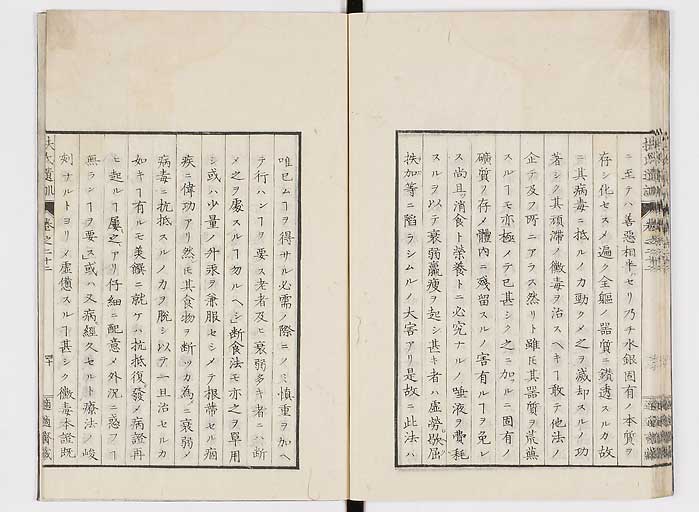 ニ至テハ善惡相半セリ乃チ水銀固有ノ本質ヲ
存シ化セスメ遍ク全軀ノ器質ニ鑚透スルカ故
ニ其病毒ニ抵ルノ力勁クメ之ヲ滅却スルノ功
著シク其頑滯ノ黴毒ヲ治スヘキヿ敢テ他法ノ
企テ及フ所ニアラス然リト雖モ其器質ヲ荒蕪
スルヿモ亦極メテ已甚シク之ニ加ルニ固有ノ
礦質ノ存メ體內ニ殘留スルノ害有ルヿヲ免レ
ス尚且消食ト榮養トニ必究ナルノ唾液ヲ費耗
スルヲ以テ衰弱羸瘦ヲ起シ甚キ者ハ虛勞
等ニ陷ラシムルノ大害アリ是故ニ此法ハ
唯已ムヿヲ得サル必需ノ際ニノミ慎重ヲ加ヘ
テ行ハンヿヲ要ス老者及ヒ衰弱多キ者ニハ斷
メ之ヲ處スルヿ勿ルヘシ」斷食法モ亦之ヲ單用
シ或ハ少量ノ升汞ヲ兼服セシメテ根帶セル痼
疾ニ偉功アリ然レ其食物ヲ斷ツカ為ニ衰弱メ
病毒ニ抗抵スルノ力ヲ脫シ以テ一旦治セルカ
如キヿ有ルモ美饌ニ就ケハ抗抵復發メ病證再
ヒ起ルヿ屢之アリ仔細ニ配意メ外況ニ惑フヿ
無ランヿヲ要ス」或ハ又病經久セルト療法ノ峻
刻ナルトヨリメ虛憊スルヿ甚シク黴毒本證既
扶氏遺訓
卷之二十二
四十
適適齋藏